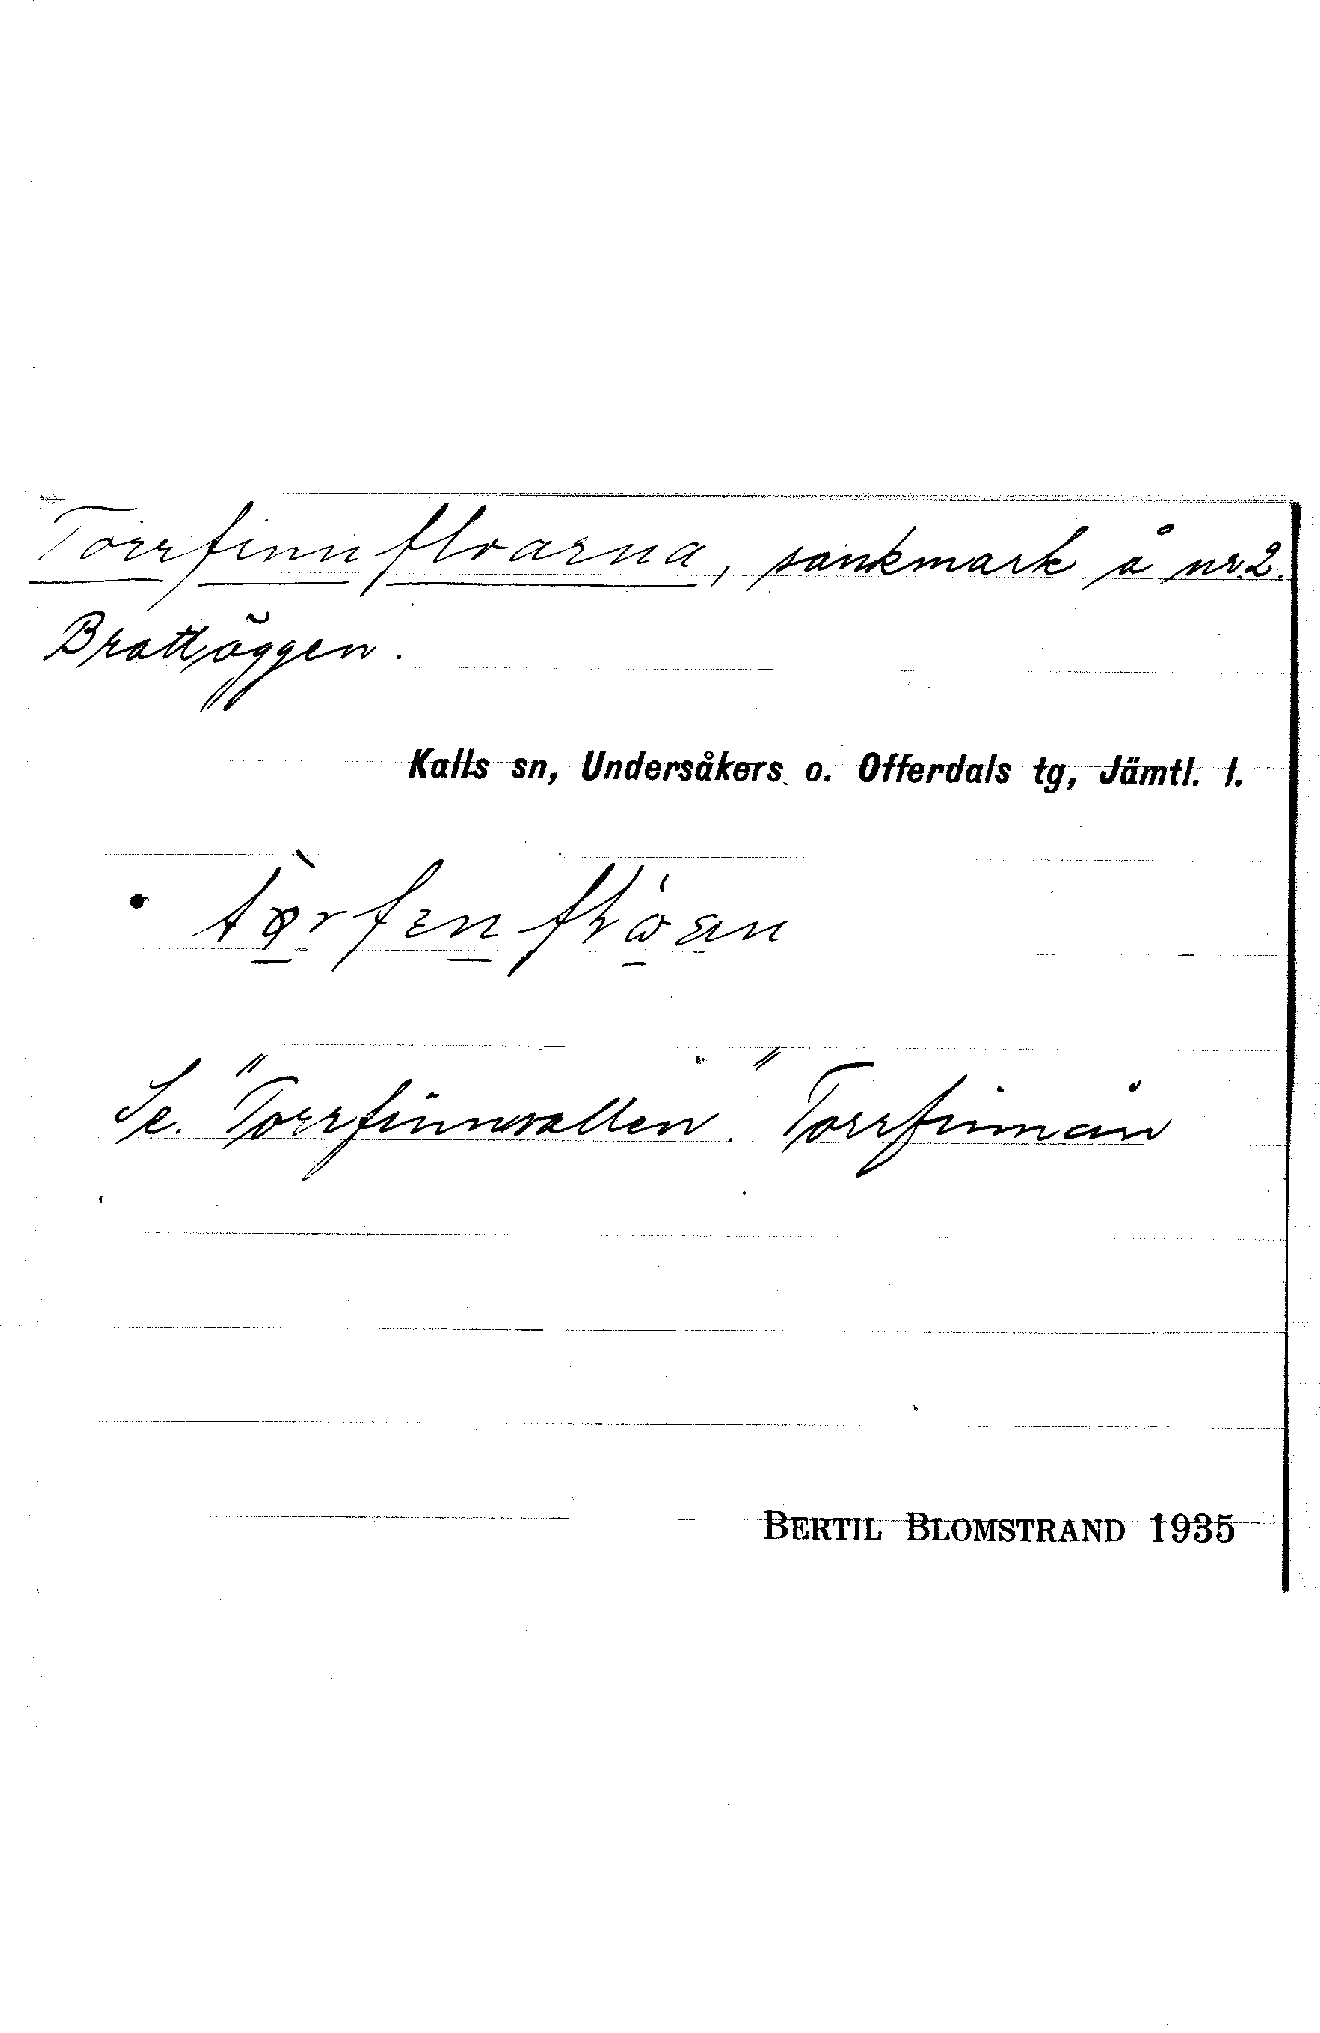 Torrfinnfloarna, sankmark å nr 2.
Brattöggen.
Kalls sn, Undersåkers o. Offerdals tg, Jämtl. l.
Se. "Torrfinnvallen." Torrfinnån
BERTIL BLOMSTRAND 1935